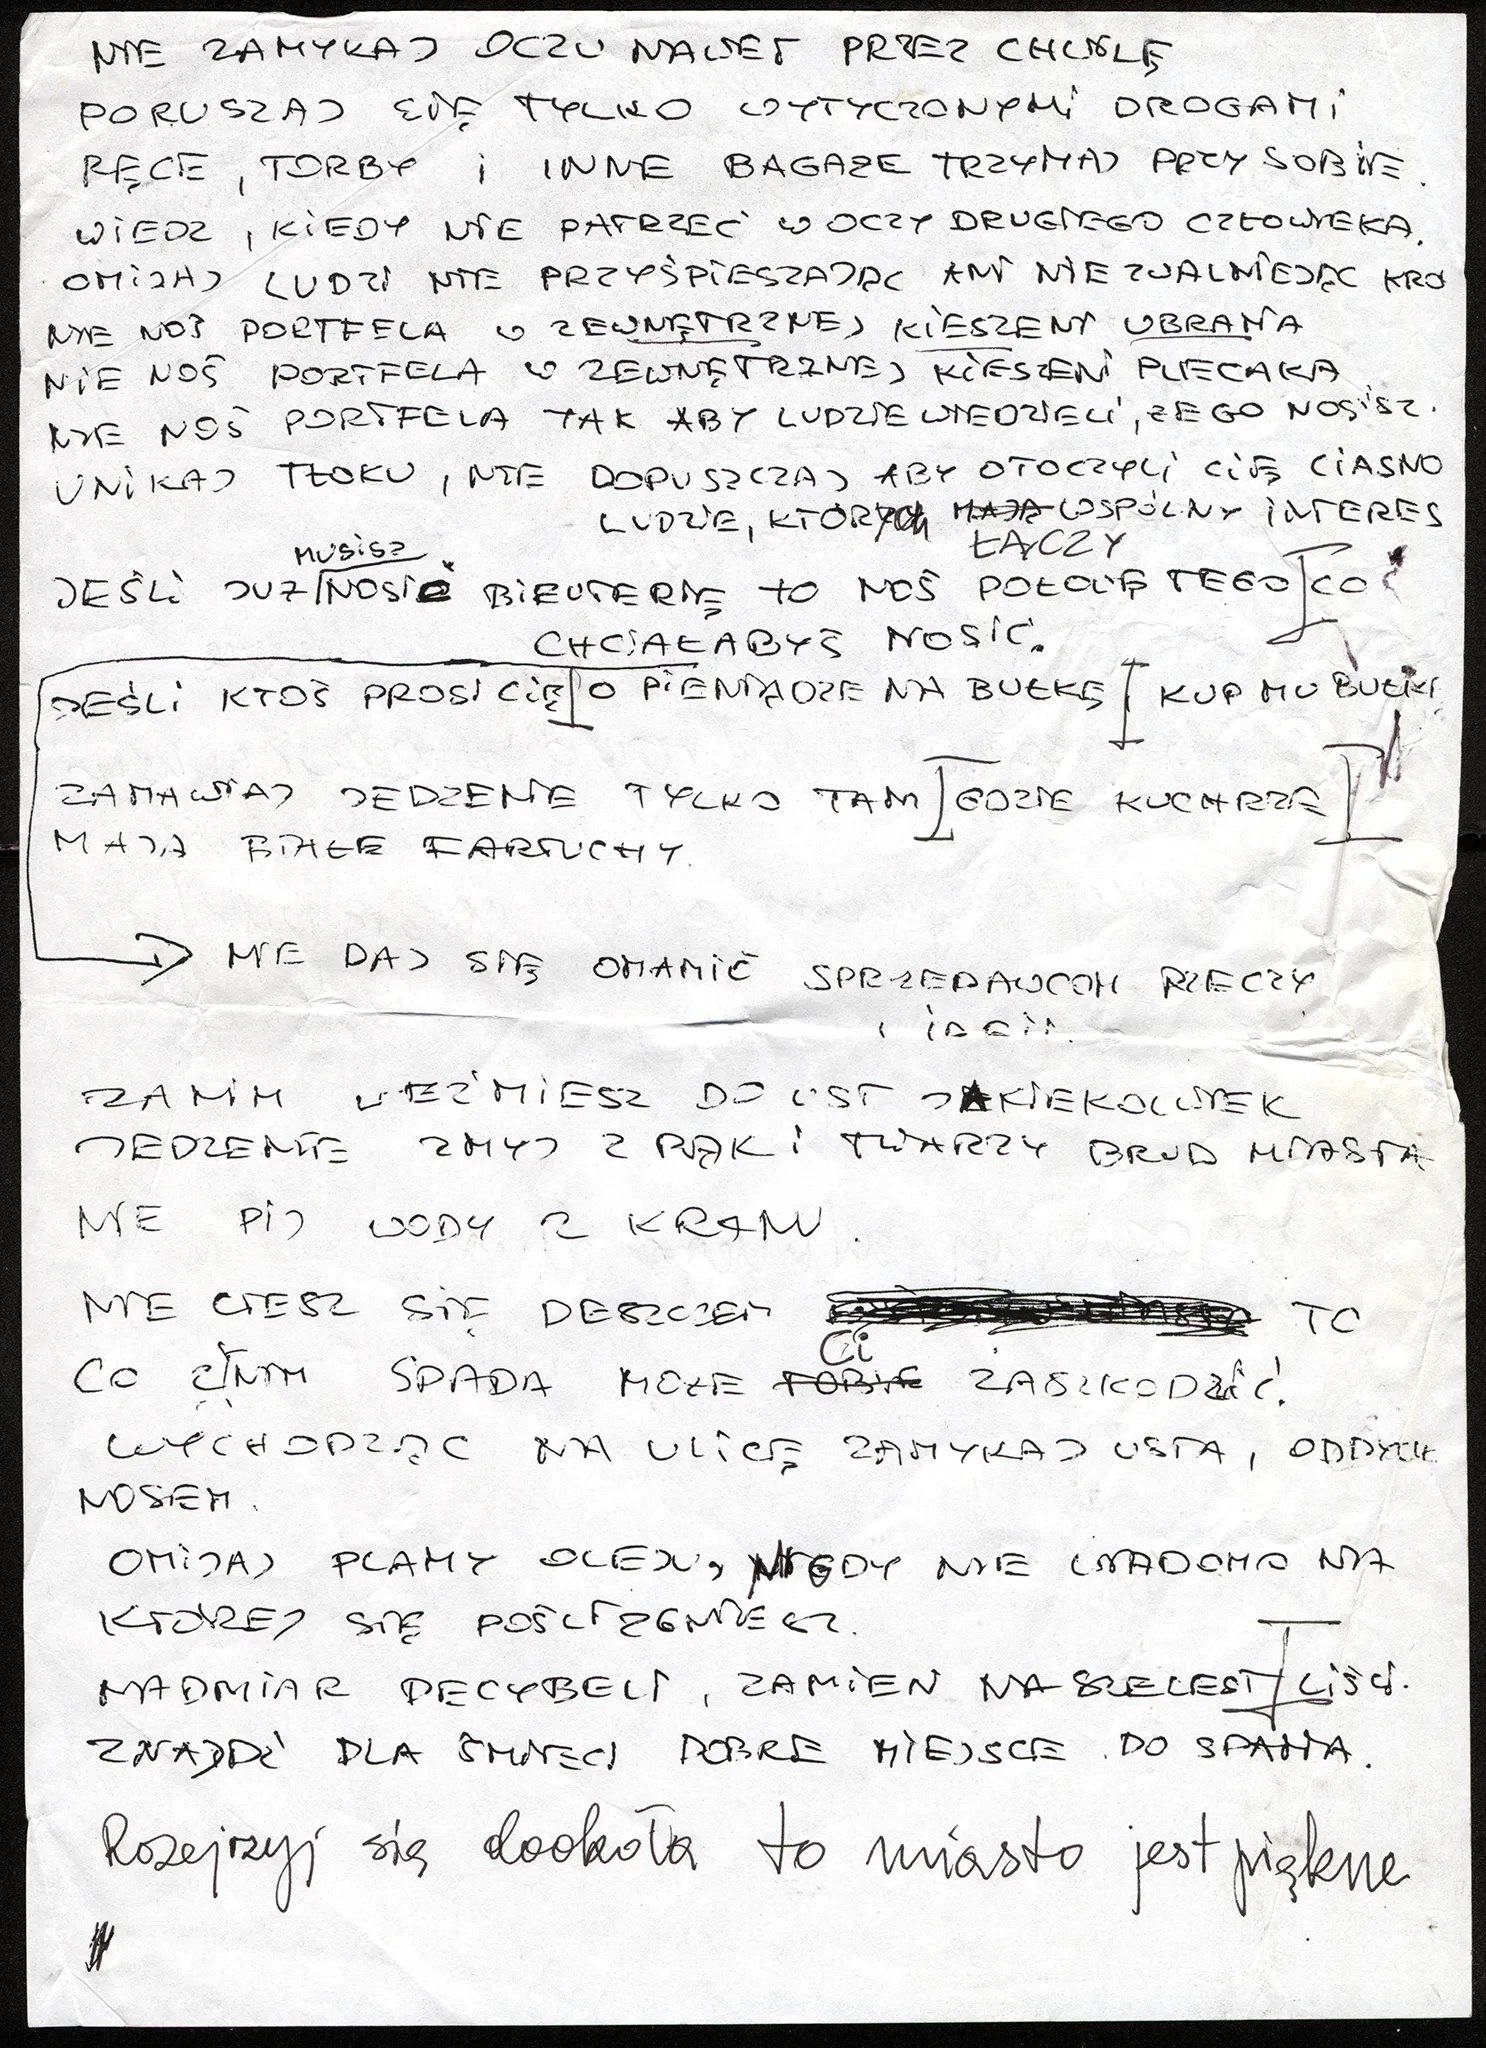 NIE ZAMYKAJ OCZU NAWET PRZEZ CHWILĘ
PORUSZAJ SIĘ TYLKO WYTYCZONYMI DROGAMI
RĘCE, TORBY I INNE BAGAŻE TRZYMAJ PRZY SOBIE.
WIEDZ, KIEDY NIE PATRZEĆ W OCZY DRUGIEGO CZŁOWIEKA.
OMIJAJ LUDZI NIE PRZYŚPIESZAJĄC ANI NIE ZWALNIEJĄC KRO
NIE NOŚ PORTFELA W ZEWNĘTRZNEJ KIESZENI UBRANIA
NIE NOŚ PORTFELA W ZEWNĘTRZNEJ KIESZENI PLECAKA
NIE NOŚ PORTFELA TAK ABY LUDZIE WIEDZIELI, ŻE GO NOSISZ.
UNIKAJ TŁOKU, NIE DOPUSZCZAJ ABY OTOCZYLI CIĘ CIASNO
LUDZIE, KTÓRYCH MAJĄ WSPÓLNY INTERES
ŁĄCZY
MUSISZ
JEŚLI JUŻ NOSIĆ BIŻUTERIĘ TO NOŚ POŁOWĘ TEGO CO
CHCIAŁABYŚ NOSIĆ.
JEŚLI KTOŚ PROSI CIĘ O PIENIĄDZE NA BUŁKĘ KUP MU BUŁKĘ
ZAMAWIAJ JEDZENIE TYLKO TAM GDZIE KUCHRZE
MAJĄ BIAŁE FARTUCHY.
NIE DAJ SIĘ OMAMIĆ SPRZEDAWCOM RZECZY
I IDEII.
ZANIM WEŹMIESZ DO UST JAKIEKOLWIEK
JEDZENIE ZMYJ Z RĄK I TWARZY BRUD MIASTA
NIE PIJ WODY Z KRANU.
NIE CIESZ SIĘ DESZCZEM TO
Ci
CO Z NIM SPADA MOŻE TOBIE ZASZKODZIĆ.
WYCHODZĄC NA ULICĘ ZAMYKAJ USTA, ODDYCH
NOSEM.
OMIJAJ PLAMY OLEJU, NIGDY NIE WIADOMO NA
KTÓREJ SIĘ POŚLIZGNIESZ.
NADMIAR DECYBELI, ZAMIEŃ NA SZELEST LIŚCI.
ZNAJDŹ DLA ŚMIECI DOBRE MIEJSCE DO SPANIA.
Rozejrzyj się dookoła to miasto jest piękne